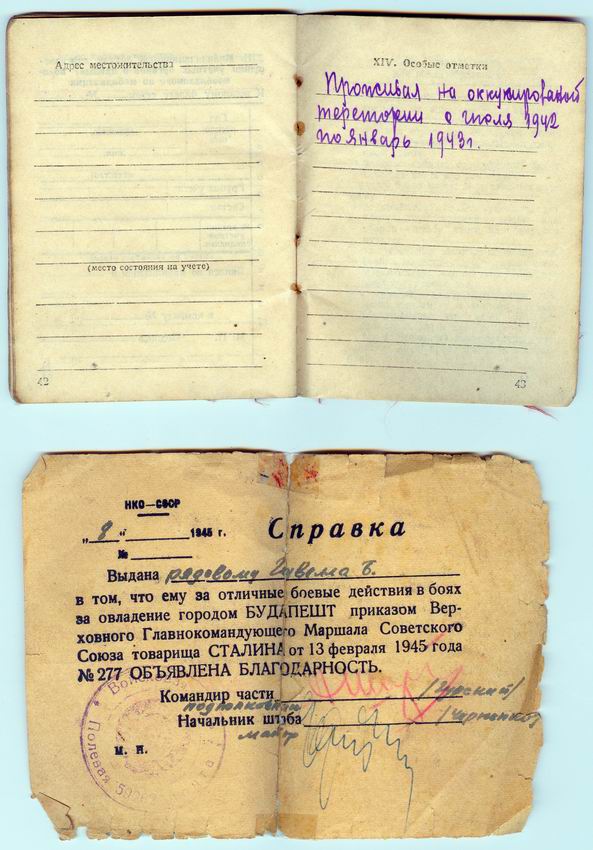 Адрес местожительства
(место состояния на учете)
42
XIV. Особые отметки
Проживал на оккупированой
теретории с июля 1942
по январь 1943 г.
43
НКО—СССР
„8" 1945 г.
№
Справка
Выдана рядовому
в том, что ему за отличные боевые действия в боях
за овладение городом БУДАПЕШТ приказом Вер-
ховного Главнокомандующего Маршала Советского
Союза товарища СТАЛИНА от 13 февраля 1945 года
№ 277 ОБЪЯВЛЕНА БЛАГОДАРНОСТЬ.
Командир части
подполковник
Начальник штаба
майор
М. П.
Полевая